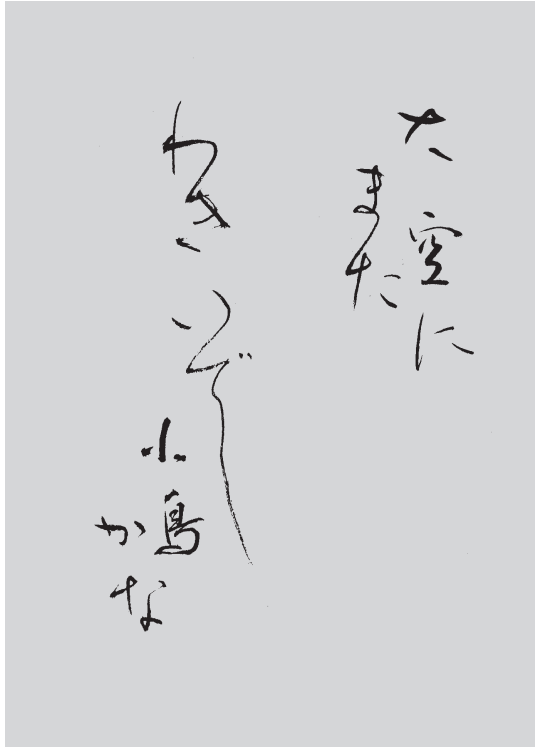 大空に
また
わきいでし
小鳥
かな